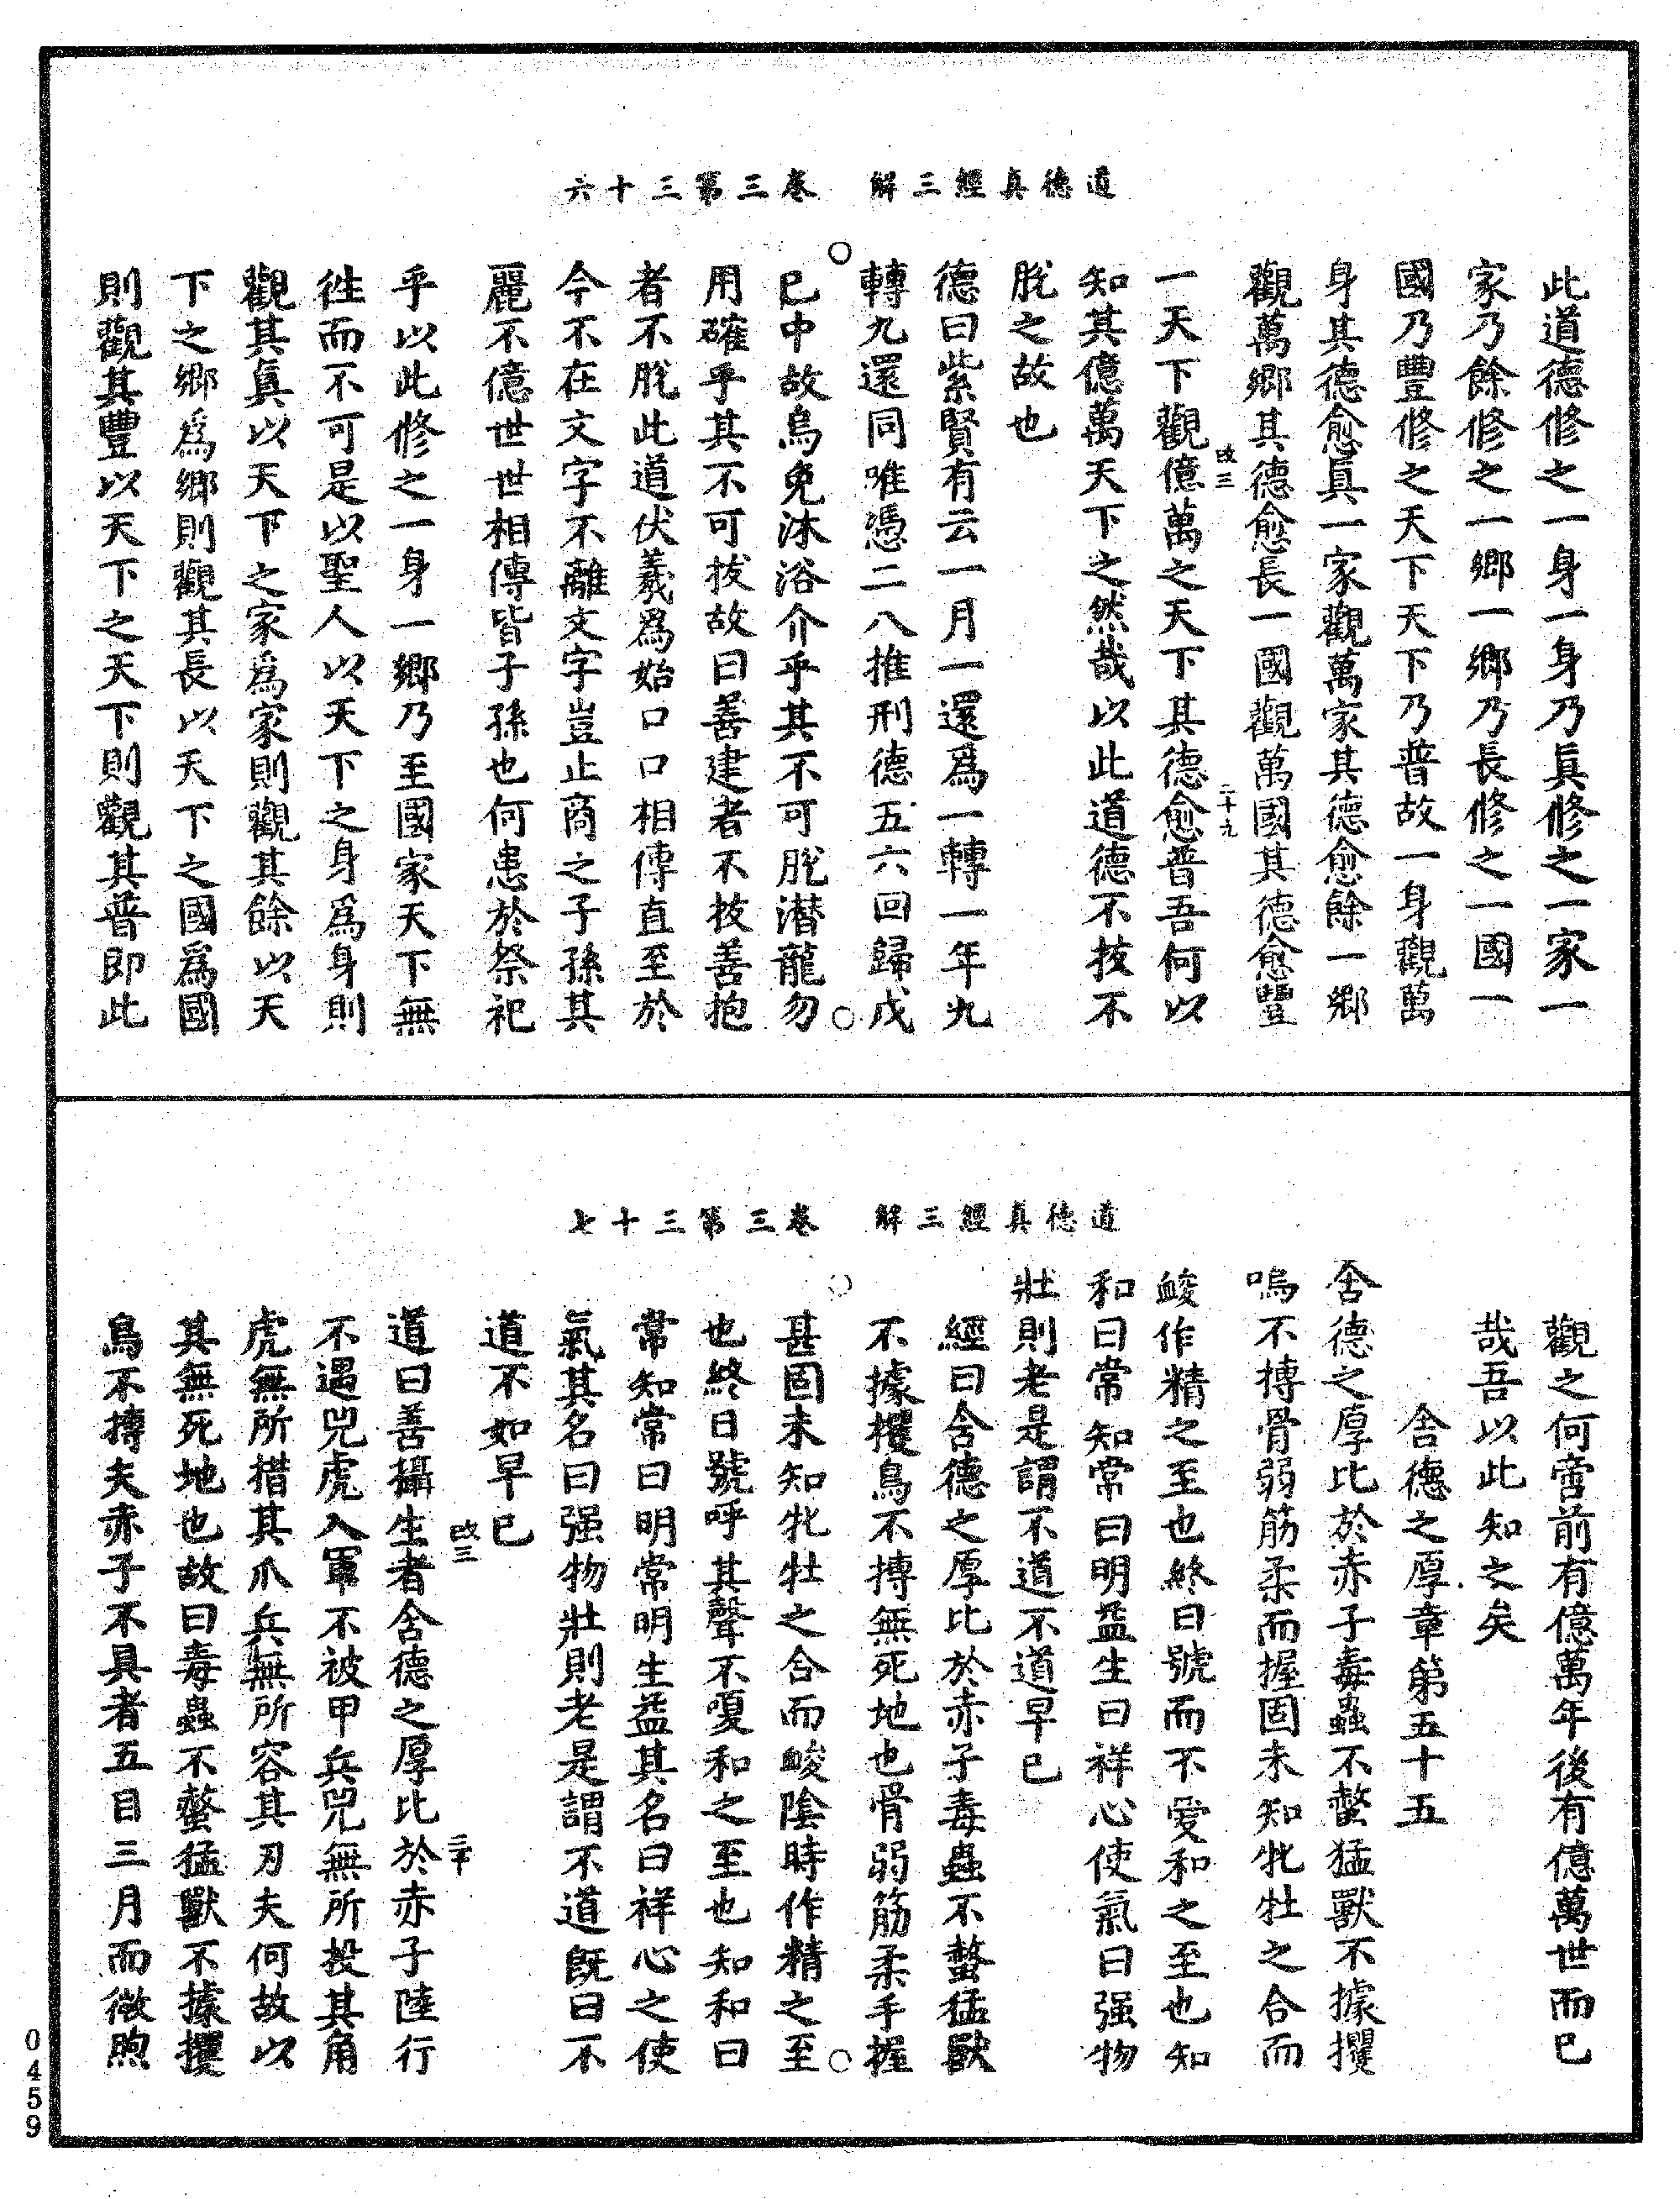 道德真經三解　卷三第三十六
此道德修之一身一身乃眞修之一家一
家乃餘修之一鄉一鄉乃長修之一國一
國乃豐修之天下天下乃普故一身觀萬
身其德愈眞一家觀萬家其德愈餘一鄉
觀萬鄉其德愈長一國觀萬國其德愈豐
改三　二十九
一天下觀億萬之天下其德愈普吾何以
知其億萬天下之然哉以此道德不拔不
脫之故也
德曰紫賢有云一月一還爲一轉一年九
轉九還同唯憑二八推刑德五六回歸戊
已中故烏兔沐浴介乎其不可脫潛龍勿
用確乎其不可拔故曰善建者不拔善抱
者不脫此道伏羲爲始口口相傳直至於
今不在文字不離文字豈止商之子孫其
麗不億世世相傳皆子孫也何患於祭祀
乎以此修之一身一鄉乃至國家天下無
徃而不可是以聖人以天下之身爲身則
觀其眞以天下之家爲家則觀其餘以天
下之鄉爲鄉則觀其長以天下之國爲國
則觀其豐以天下之天下則觀其普即此
道德真經三解　卷三第三十七
觀之何啻前有億萬年後有億萬世而已
哉吾以此知之矣
含德之厚章第五十五
含德之厚比於赤子毒蟲不螫猛獸不據攫
鳴不摶骨弱筋柔而握固未知牝牡之合而
峻作精之至也終日號而不嗄和之至也知
和曰常知常曰明益生曰祥心使氣曰强物
壯則老是謂不道不道早已
經曰含德之厚比於赤子毒蟲不螫猛獸
不據攫鳥不摶無死地也骨弱筋柔手握
甚固未知牝牡之合而峻陰時作精之至
也終日號呼其聲不嗄和之至也知和曰
常知常曰明常明生益其名曰祥心之使
氣其名曰强物壯則老是謂不道旣曰不
道不如早已
改三　三十
道曰善攝生者含德之厚比於赤子陸行
不遇兕虎入軍不被甲兵兕無所投其角
虎無所措其爪兵無所容其刃夫何故以
其無死地也故曰毒蟲不螫猛獸不據攫
鳥不摶夫赤子不具者五目三月而微煦
0459